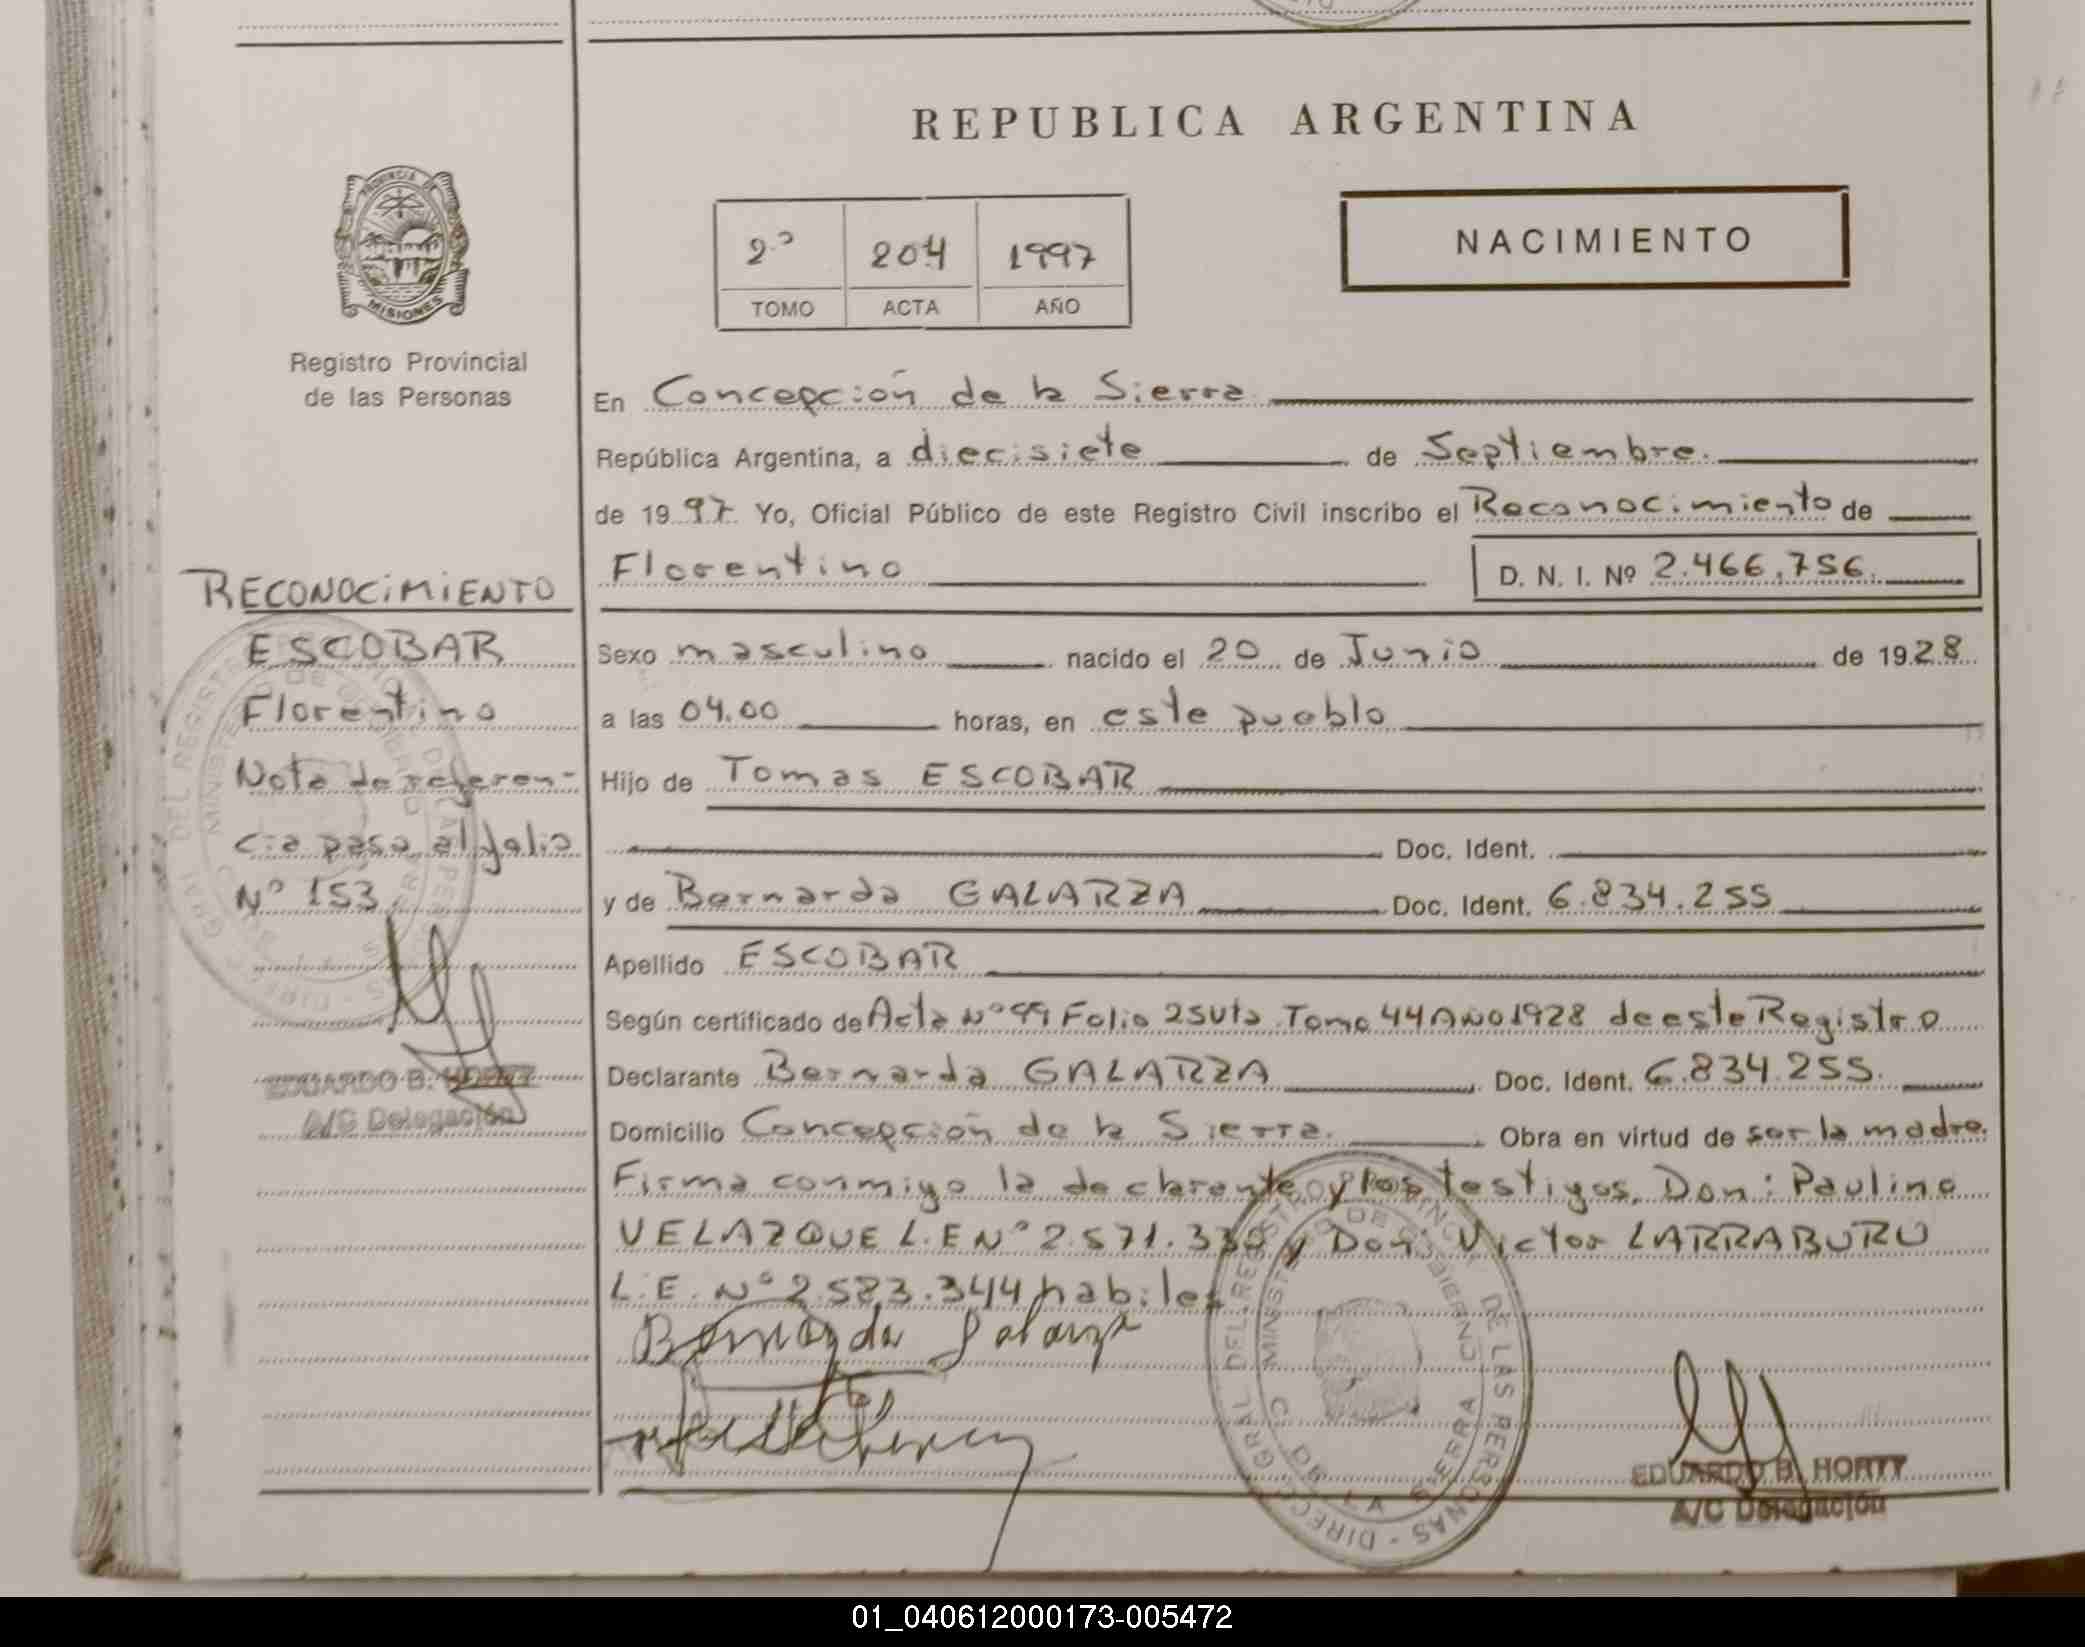 REPUBLICA ARGENTINA
PROVINCIA DE
MISIONES
Registro Provincial
de las Personas
2º 204 1997
TOMO ACTA AÑO
NACIMIENTO
En Concepción de la Sierra
República Argentina, a diecisiete de Septiembre.
de 1997. Yo, Oficial Público de este Registro Civil inscribo el Reconocimiento de
Florentino D. N. I. Nº 2.466.756.
Sexo masculino nacido el 20 de Junio de 1928
a las 04.00 horas, en este pueblo
Hijo de Tomas ESCOBAR
Doc. Ident.
y de Bernarda GALARZA Doc. Ident. 6.834.255
Apellido ESCOBAR
Según certificado de Acta Nº 99 Folio 25 Vta. Tomo 44 AÑO 1928 de este Registro
Declarante Bernarda GALARZA Doc. Ident. 6.834.255.
Domicilio Concepción de la Sierra. Obra en virtud de ser la madre.
Firma conmigo la declarante y los testigos, Don: Paulino
VELAZQUE L.E Nº 2.571.339 y Don: Victor LARRABURU
L.E. Nº 2.523.344 habiles
Bernarda Galarza
EDUARDO B. HORTT
A/C Delegación
RECONOCIMIENTO
ESCOBAR
Florentino
Nota de referen-
cia pasa al folio
Nº 153
EDUARDO B. HORTT
A/C Delegación
DIREC. GRAL. DEL REGISTRO PROVINCIAL DE LAS PERSONAS
MINISTERIO DE GOBIERNO
C. DE LA SIERRA
01_040612000173-005472